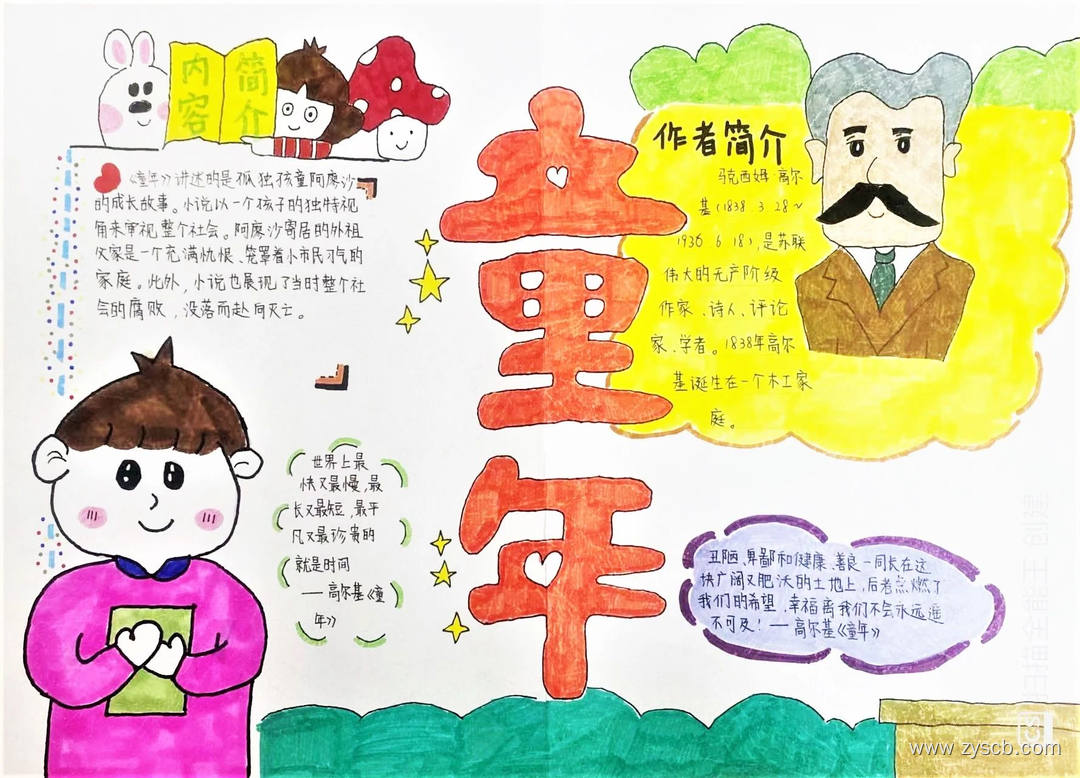 内容
简介
《童年》讲述的是孤独孩童阿廖沙
的成长故事。小说以一个孩子的独特视
角来审视整个社会。阿廖沙寄居的外祖
父家是一个充满忧恨、笼罩着小市民习气的
家庭。此外，小说也展现了当时整个社
会的腐败，没落而赴向灭亡。
童年
作者简介
马克西姆·高尔
基(1838.3.28~
1936 6 18)，是苏联
伟大的无产阶级
作家、诗人、评论
家、学者。1838年高尔
基诞生在一个木工家
庭。
世界上最
快又最慢，最
长又最短，最平
凡又最珍贵的
就是时间
——高尔基《童
年》
丑陋、卑鄙和健康、善良一同长在这
块广阔又肥沃的土地上，后者点燃了
我们的希望，幸福离我们不会永远遥
不可及！——高尔基《童年》
扫描全能王 创建
CS
www.zyscb.com